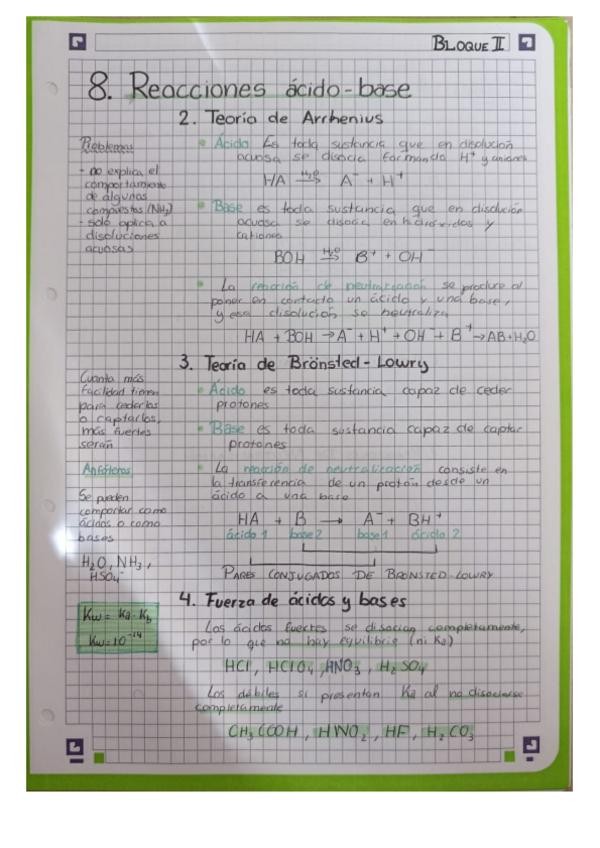 BLOQUE II
8. Reacciones ácido-base
2. Teoría de Arrhenius
Problemas
- no explica el
comportamiento
de algunas
compuestos (NH3)
- solo aplica a
disoluciones
acuosas
• Ácido Es toda sustancia que en disolución
acuosa se disocia formando H+ y aniones
HA H2O→ A- + H+
• Base es toda sustancia que en disolución
acuosa se disocia en hidróxidos y
cationes
BOH H2O→ B+ + OH-
• La reacción de neutralización se produce al
poner en contacto un ácido y una base,
y esa disolución se neutraliza
HA + BOH → A- + H+ + OH- + B+ → AB + H2O
3. Teoría de Brönsted-Lowry
Cuanta más
facilidad tienen
para cederlos
o captarlos,
más fuertes
serán
Anfóteros
Se pueden
comportar como
ácidos o como
bases
H2O, NH3,
HSO4-
• Ácido es toda sustancia capaz de ceder
protones
• Base es toda sustancia capaz de captar
protones
• La reacción de neutralización consiste en
la transferencia de un protón desde un
ácido a una base
HA + B → A- + BH+
ácido 1 base 2 base 1 ácido 2
PARES CONJUGADOS DE BRÖNSTED-LOWRY
4. Fuerza de ácidos y bases
Kw = Ka · Kb
Kw = 10-14
Los ácidos fuertes se disocian completamente,
por lo que no hay equilibrio (ni Ka)
HCl, HClO4, HNO3, H2SO4
Los débiles si presentan Ka al no disociarse
completamente
CH3COOH, HNO2, HF, H2CO3